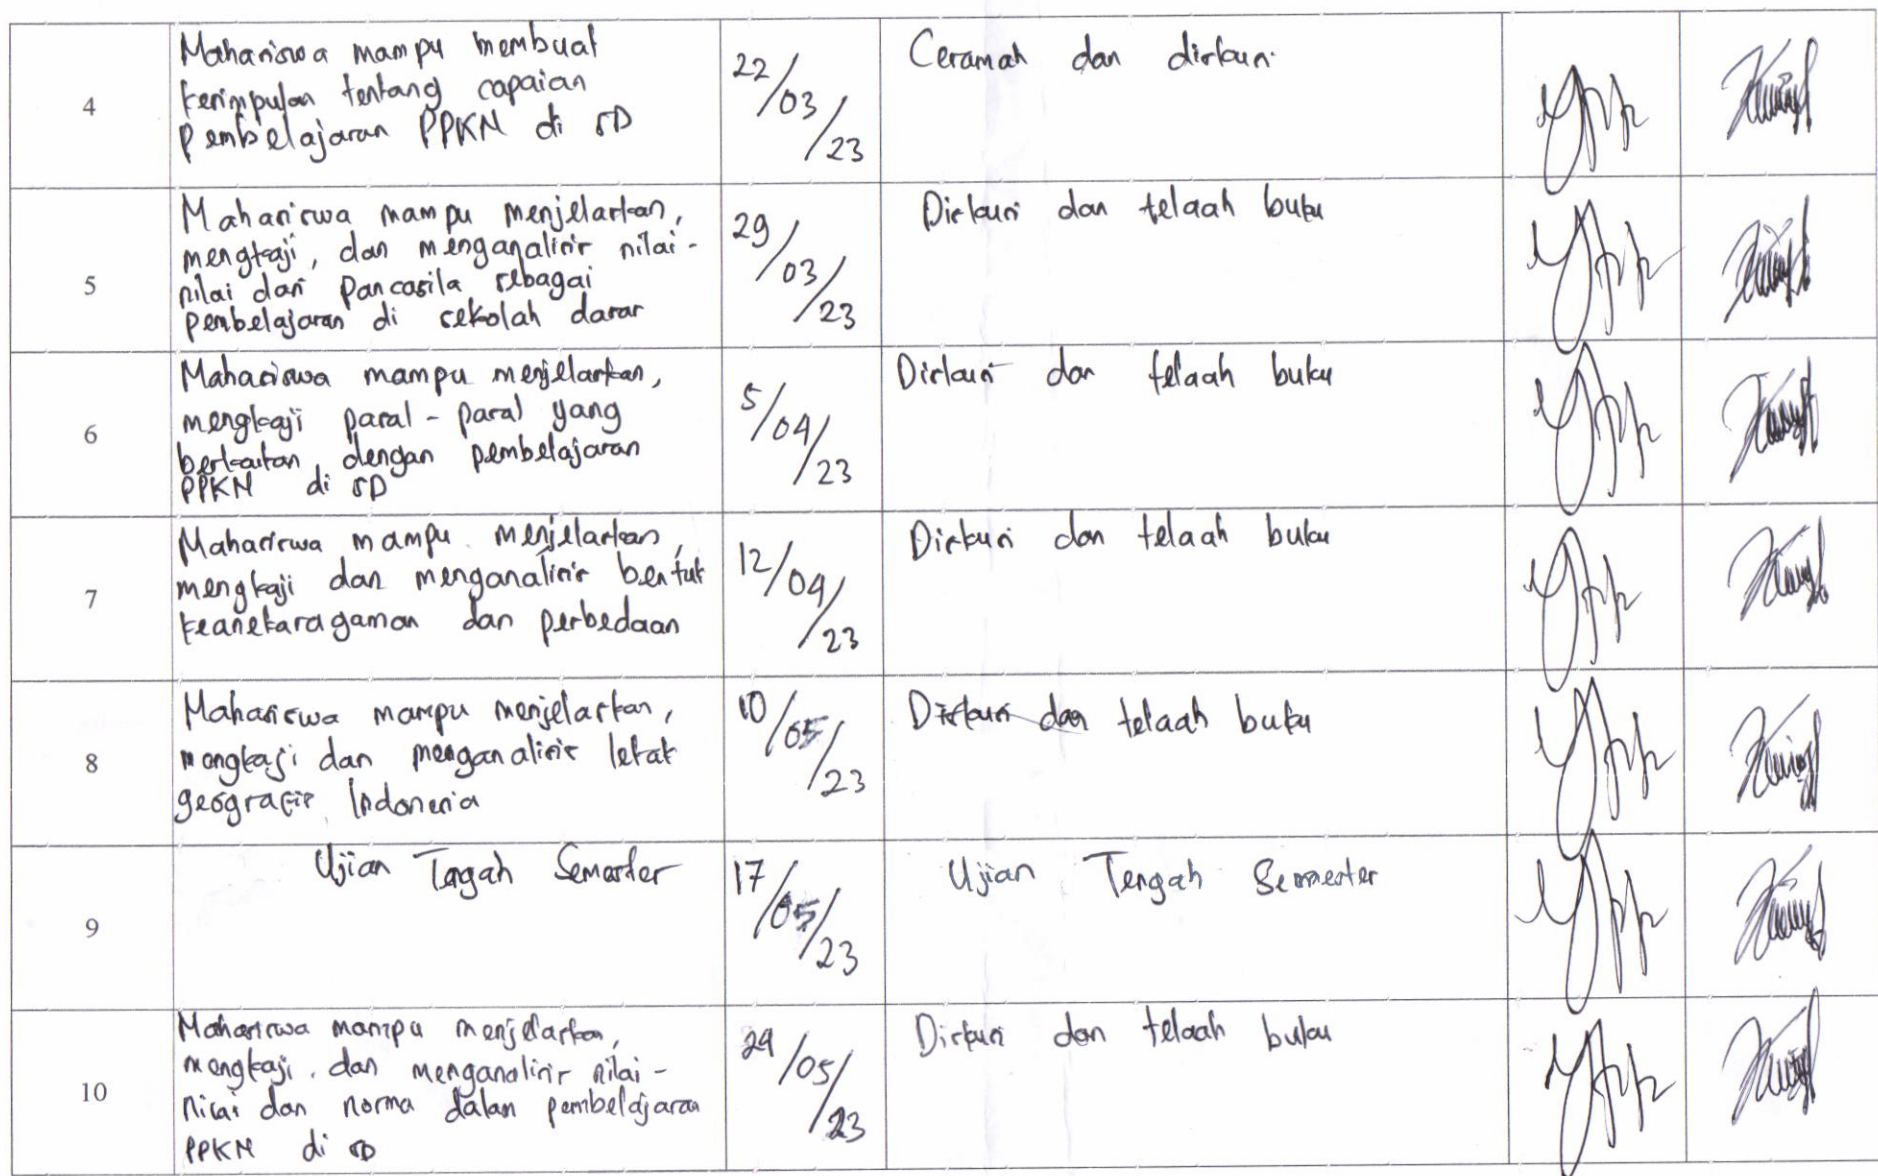 4
Mahasiswa mampu membuat
kesimpulan tentang capaian
pembelajaran PPKN di SD
22/03/23
Ceramah dan diskusi
5
Mahasiswa mampu menjelaskan,
mengkaji, dan menganalisis nilai-
nilai dari Pancasila sebagai
pembelajaran di sekolah dasar
29/03/23
Diskusi dan telaah buku
6
Mahasiswa mampu menjelaskan,
mengkaji pasal-pasal yang
berkaitan dengan pembelajaran
PPKN di SD
5/04/23
Diskusi dan telaah buku
7
Mahasiswa mampu menjelaskan,
mengkaji dan menganalisis bentuk
keanekaragaman dan perbedaan
12/04/23
Diskusi dan telaah buku
8
Mahasiswa mampu menjelaskan,
mengkaji dan menganalisis letak
geografis Indonesia
10/05/23
Diskusi dan telaah buku
9
Ujian Tengah Semester
17/05/23
Ujian Tengah Semester
10
Mahasiswa mampu menjelaskan,
mengkaji, dan menganalisis nilai-
nilai dan norma dalam pembelajaran
PPKN di SD
24/05/23
Diskusi dan telaah buku